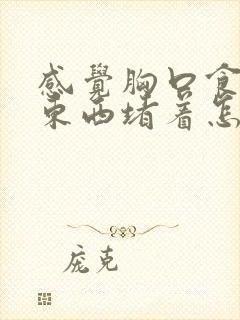 感覺胸口食
東西堵著怎
庞克